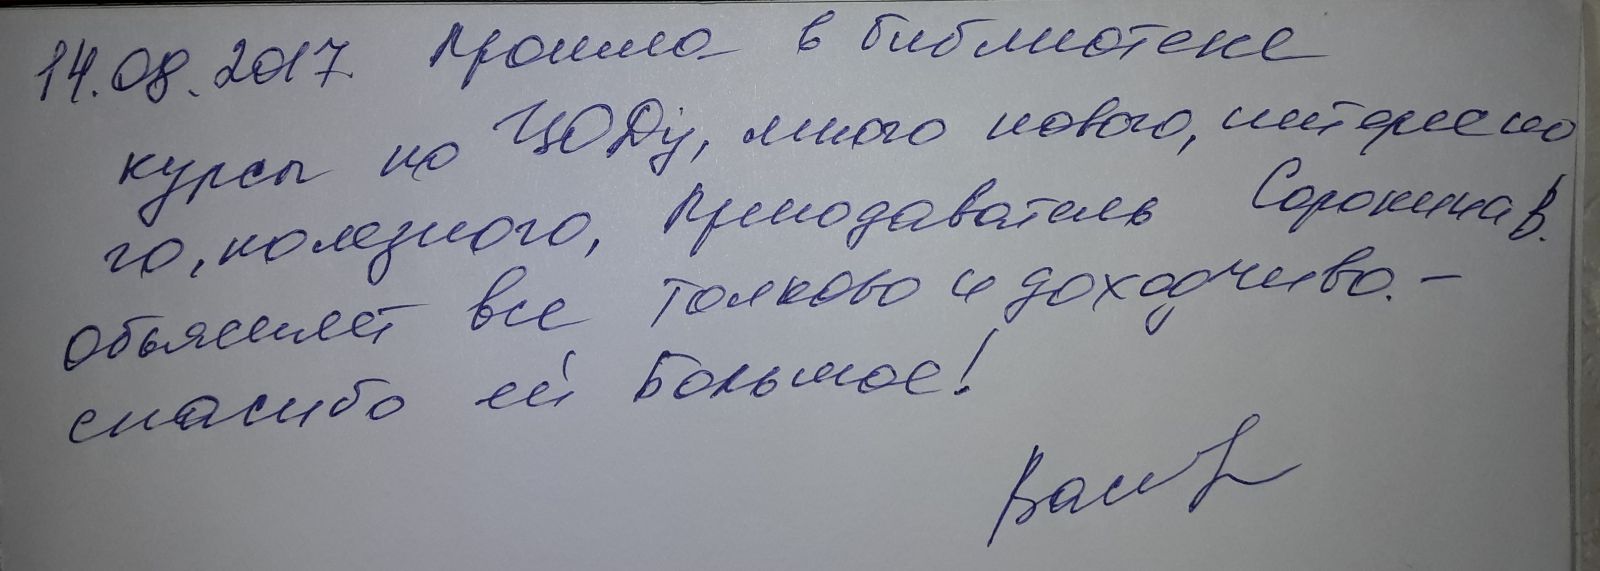 14.08.2017. Прошла в библиотеке
курсы по ЦОДу, много нового, интересно
го, полезного, Преподаватель Сорокина В.
Объясняет все толково и доходчиво. –
спасибо ей большое!